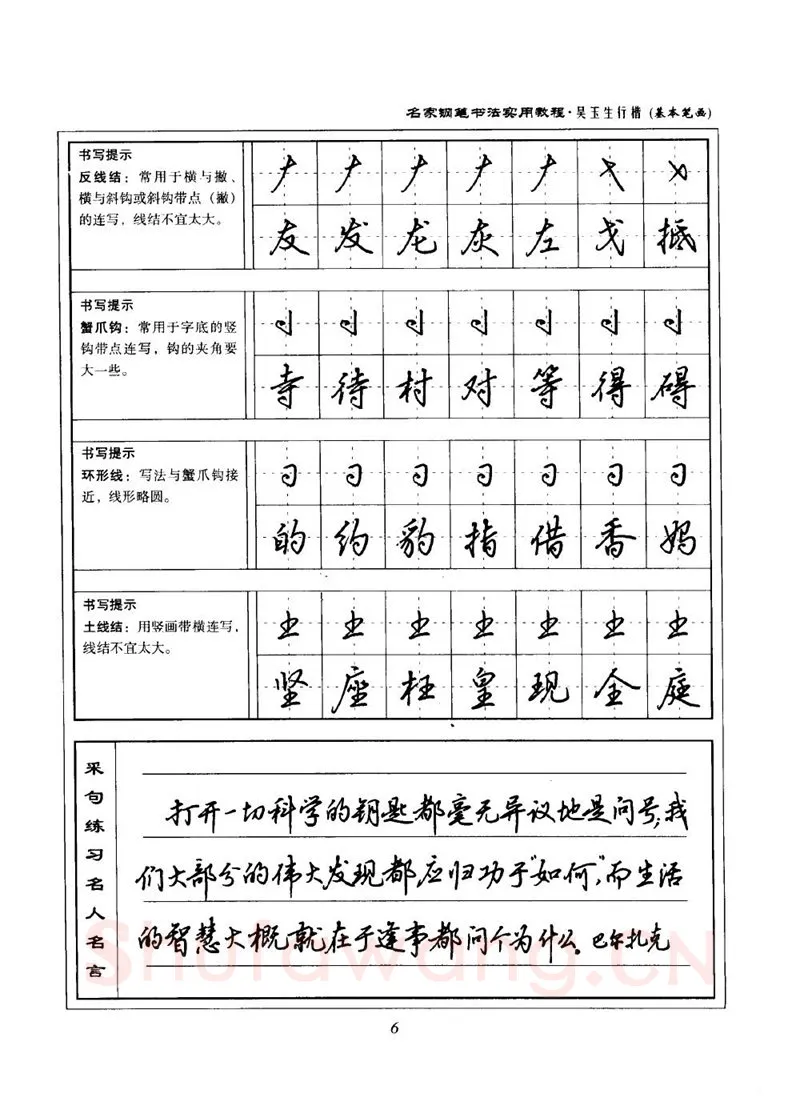 名家钢笔书法实用教程·吴玉生行楷(基本笔画)
书写提示
反线结：常用于横与撇、
横与斜钩或斜钩带点（撇）
的连写，线结不宜太大。
友发龙灰左戈抵
书写提示
蟹爪钩：常用于字底的竖
钩带点连写，钩的夹角要
大一些。
寺待村对等得碍
书写提示
环形线：写法与蟹爪钩接
近，线形略圆。
的约豹指借香妈
书写提示
土线结：用竖画带横连写，
线结不宜太大。
坚座枉皇现全庭
采句练习名人名言
打开一切科学的钥匙都毫无异议地是问号，我
们大部分的伟大发现都应归功于“如何”，而生活
的智慧大概就在于逢事都问个为什么。巴尔扎克
Shufawang.CN
6